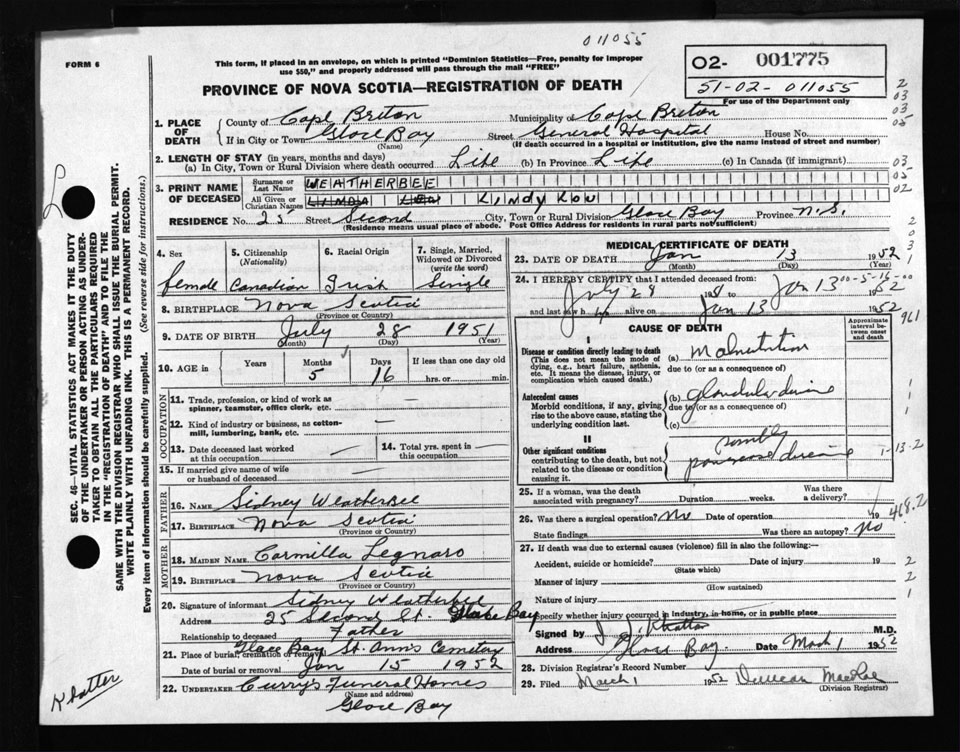 011055
FORM 6
This form, if placed in an envelope, on which is printed "Dominion Statistics—Free, penalty for improper
use $50," and properly addressed will pass through the mail "FREE"
O2- 001775
51-02-011055
For use of the Department only
PROVINCE OF NOVA SCOTIA—REGISTRATION OF DEATH
1. PLACE OF DEATH
County of Cape Breton Municipality of Cape Breton
If in City or Town Glace Bay Street General Hospital House No.
(Name) (If death occurred in a hospital or institution, give the name instead of street and number)
2. LENGTH OF STAY (in years, months and days)
(a) In City, Town or Rural Division where death occurred Life (b) In Province Life (c) In Canada (if immigrant)
3. PRINT NAME OF DECEASED
Surname or Last Name WEATHERBEE
All Given or Christian Names LINDA
RESIDENCE No. 25 Street Second City, Town or Rural Division Glace Bay Province N.S.
(Residence means usual place of abode. Post Office Address for residents in rural parts not sufficient)
4. Sex female
5. Citizenship (Nationality) Canadian
6. Racial Origin Irish
7. Single, Married, Widowed or Divorced (write the word) Single
8. BIRTHPLACE Nova Scotia
(Province or Country)
9. DATE OF BIRTH July 28 1951
(Month) (Day) (Year)
10. AGE in Years Months 5 Days 16 If less than one day old hrs. or min.
OCCUPATION
11. Trade, profession, or kind of work as
spinner, teamster, office clerk, etc. —
12. Kind of industry or business, as cotton-
mill, lumbering, bank, etc. —
13. Date deceased last worked at this occupation — 14. Total yrs. spent in this occupation —
15. If married give name of wife
or husband of deceased —
FATHER
16. NAME Sidney Weatherbee
17. BIRTHPLACE Nova Scotia
(Province or Country)
MOTHER
18. MAIDEN NAME Carmilla Legnaro
19. BIRTHPLACE Nova Scotia
(Province or Country)
20. Signature of informant Sidney Weatherbee
Address 25 Second St. Glace Bay
Relationship to deceased Father
21. Place of burial, cremation or removal Glace Bay St. Ann's Cemetary
Date of burial or removal Jan 15 1952
22. UNDERTAKER Curry's Funeral Homes
(Name and address)
Glace Bay
MEDICAL CERTIFICATE OF DEATH
23. DATE OF DEATH Jan 13 1952
(Month) (Day) (Year)
24. I HEREBY CERTIFY that I attended deceased from:
July 28 1951 to Jan 13 1952
and last saw h alive on Jan 13 1952
CAUSE OF DEATH
Approximate interval between onset and death
I
Disease or condition directly leading to death
(This does not mean the mode of
dying, e.g., heart failure, asthenia,
etc. It means the disease, injury, or
complication which caused death.)
(a) Malnutrition
due to (or as a consequence of)
Antecedent causes
Morbid conditions, if any, giving
rise to the above cause, stating the
underlying condition last.
(b) glandular disease
due to (or as a consequence of)
(c)
II
Other significant conditions
contributing to the death, but not
related to the disease or condition
causing it.
possibly
disease
25. If a woman, was the death associated with pregnancy? Duration weeks. Was there a delivery?
26. Was there a surgical operation? No Date of operation 19
State findings Was there an autopsy? No
27. If death was due to external causes (violence) fill in also the following:—
Accident, suicide or homicide? Date of injury 19
(State which)
Manner of injury
(How sustained)
Nature of injury
Specify whether injury occurred in industry, in home, or in public place
Signed by M.D.
Address Glace Bay. Date March 1 1952
28. Division Registrar's Record Number
29. Filed March 1 1952 Duncan MacRae
(Division Registrar)
SEC. 46—VITAL STATISTICS ACT MAKES IT THE DUTY
OF THE UNDERTAKER OR PERSON ACTING AS UNDER-
TAKER TO OBTAIN ALL THE PARTICULARS REQUIRED
IN THE "REGISTRATION OF DEATH" AND TO FILE THE
SAME WITH THE DIVISION REGISTRAR WHO SHALL ISSUE THE BURIAL PERMIT.
WRITE PLAINLY WITH UNFADING INK. THIS IS A PERMANENT RECORD.
Every item of Information should be carefully supplied. (See reverse side for instructions.)
961
468.2
Khatter